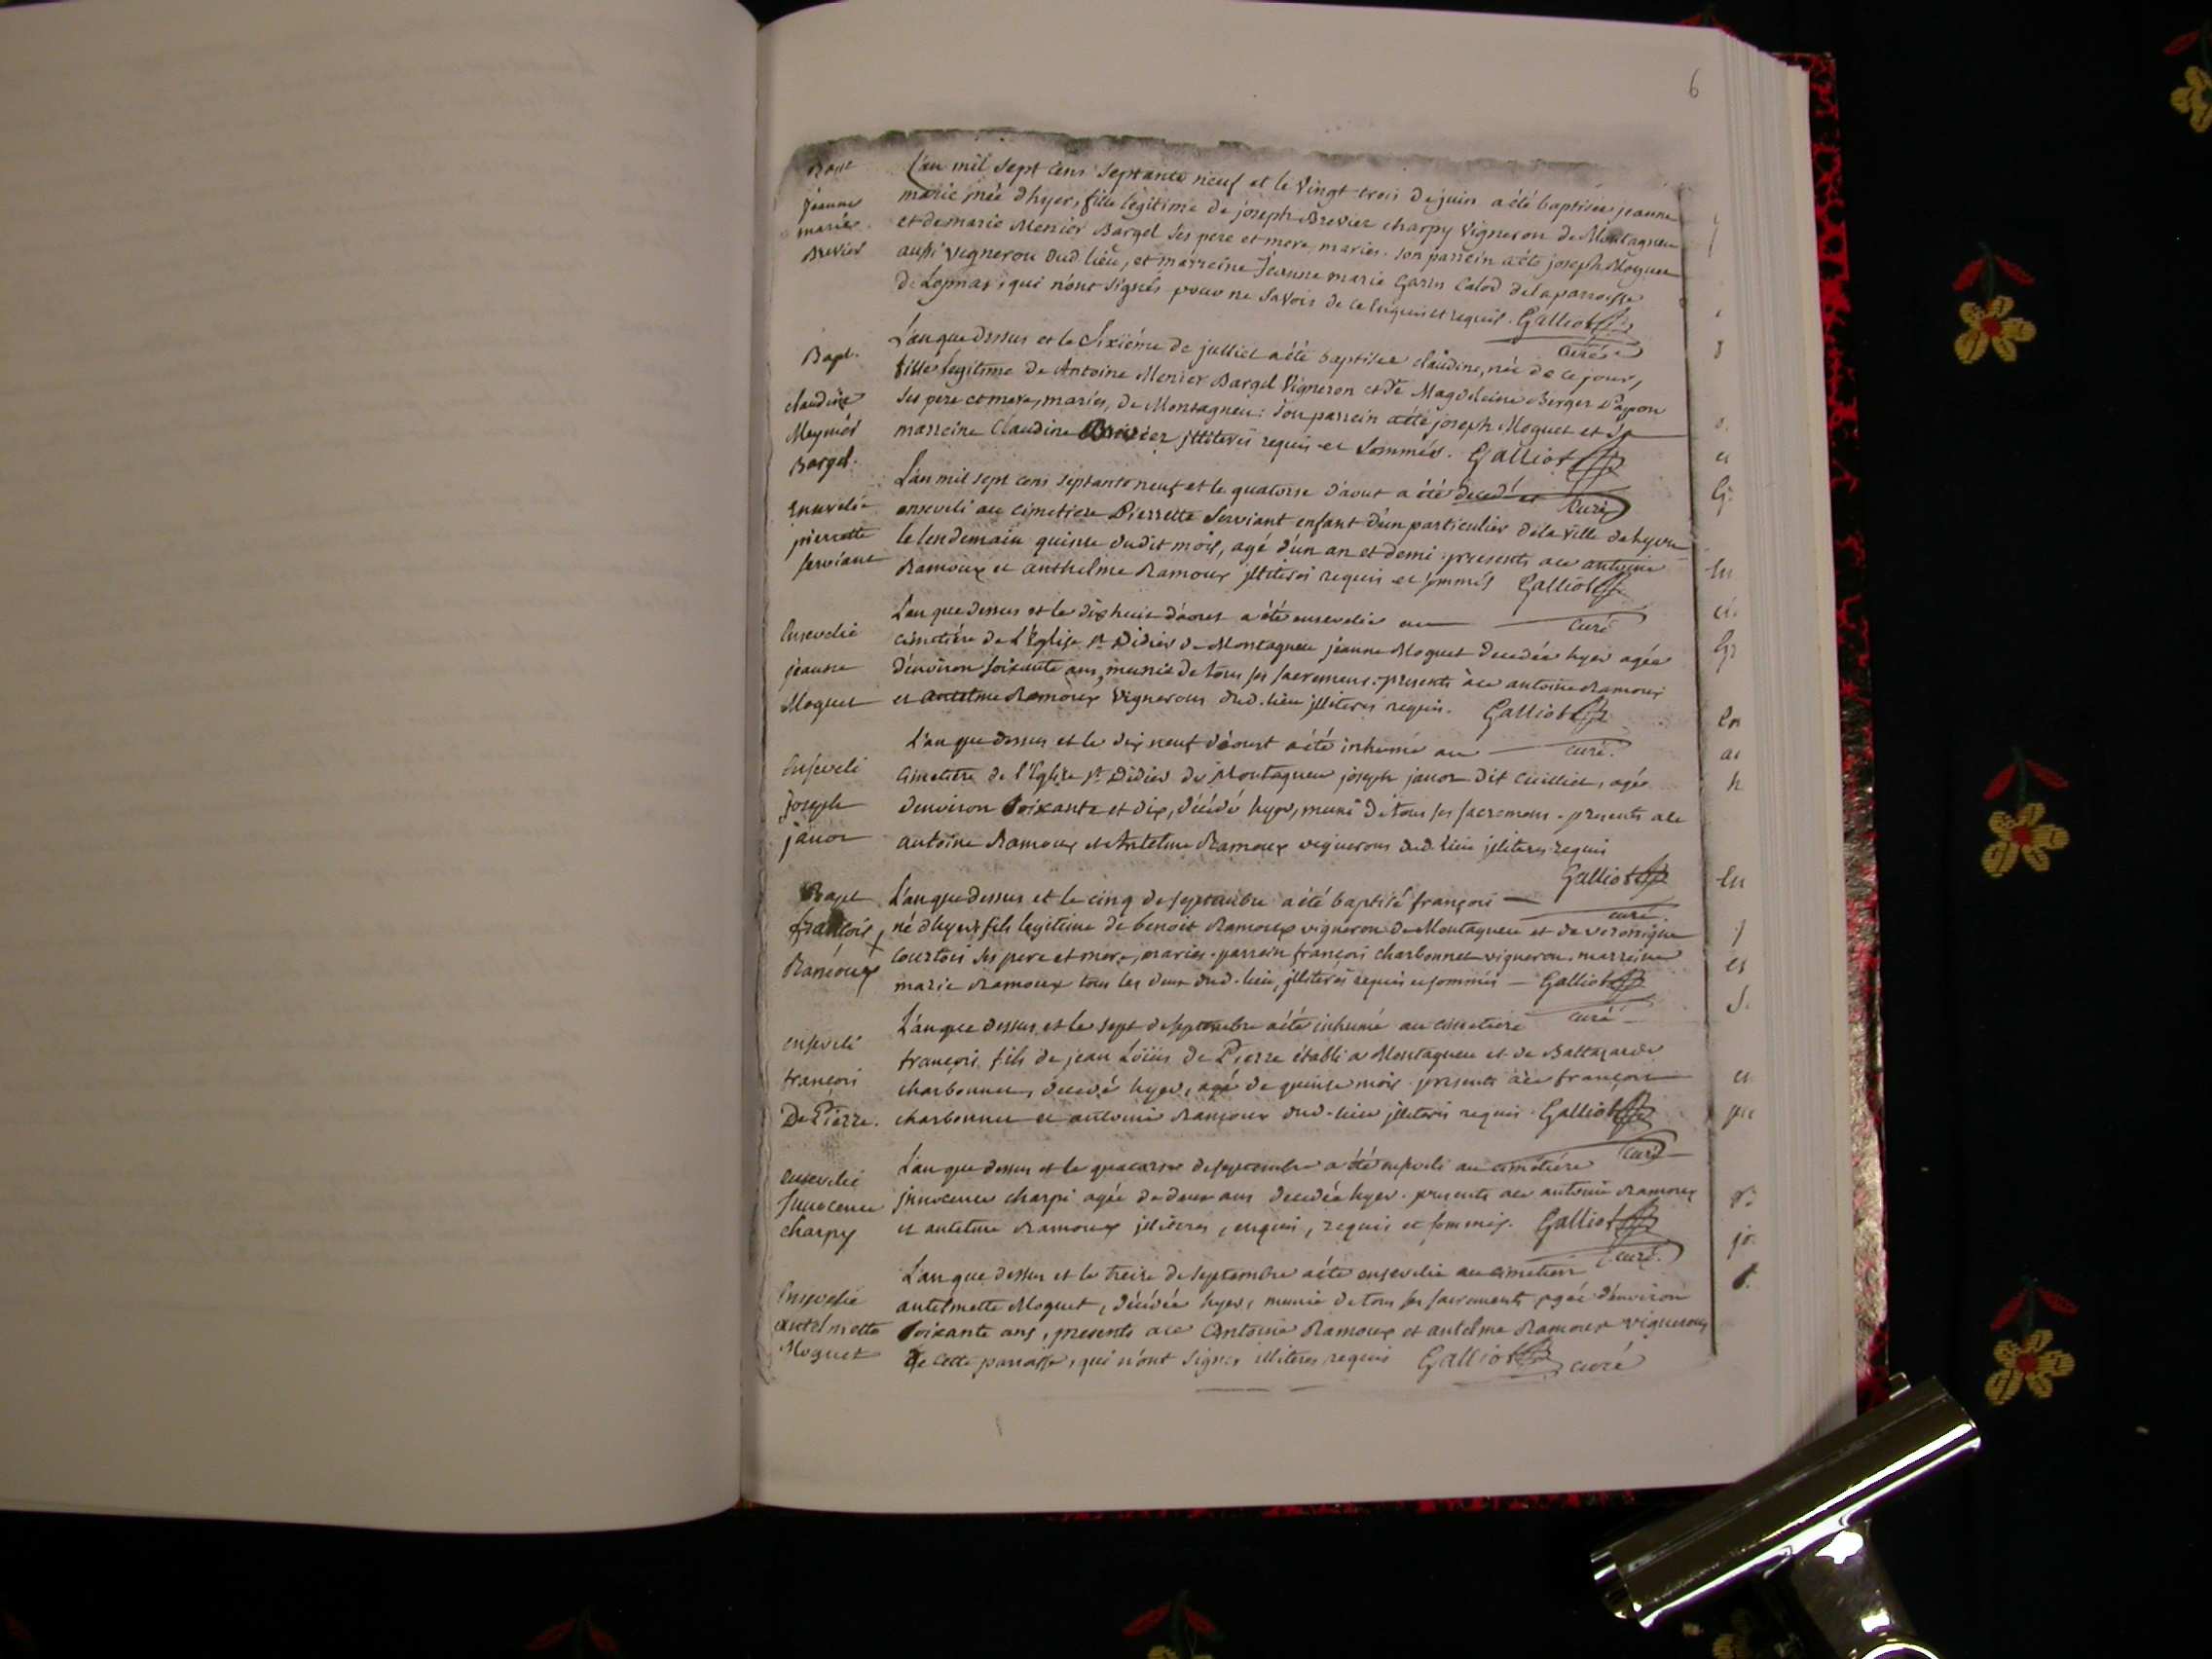 6
Bapt
jeanne
marie
Brevier
L'an mil sept cens septante neuf et le vingt-trois de juin a été baptisée jeanne
marie, née d'hyer, fille légitime de joseph Brevier charpy vigneron de Montagneu
et de marie Menier Bargel ses pere et mere, mariés. son parrein a été joseph Moguet
aussi vigneron dud. lieu, et marreine jeanne marie Garin Calod de la parroisse
de qui n'ont signés pour ne savoir de ce enquis et requis. Galliot
curé
Bapt.
claudine
Meynier
Bargel.
L'an que dessus et le sixiéme de julliet a été baptisée claudine, née de ce jour,
fille légitime de Antoine Menier Bargel vigneron et de Magdeleine Berger
ses pere et mere, mariés, de Montagneu: son parrein a été joseph Moguet et sa
marreine Claudine Brevier jlliterés requis et sommés. Galliot
curé
Ensevelie
pierrette
serviant
L'an mil sept cens septante neuf et le quatorse d'aout a été decedé et
enseveli au cimetiere Pierrette Serviant enfant d'un particulier de la ville de
le lendemain quinse dudit mois, agé d'un an et demi. presents a ce antoine
Ramoux et anthelme Ramoux jlliterés requis et sommés Galliot
curé
Ensevelie
jeanne
Moguet
L'an que dessus et le dix huit d'aoust a été ensevelie au
cimetiére de L'Eglise St Didier de Montagneu jeanne Moguet decedée hyer agée
d'environ soixante ans, munie de tous ses sacremens. presents à ce antoine Ramoux
et antelme Ramoux vignerons dud. lieu jlliterés requis. Galliot
curé.
Enseveli
joseph
janon
L'an que dessus et le dix neuf d'aoust a été inhumé au
cimetiere de l'Eglise St Didier de Montagneu joseph janon dit agé
d'environ soixante et dix, décédé hyer, muni de tous ses sacremens. presents a ce
antoine Ramoux et Antelme Ramoux vignerons dud. lieu jlliteres requis
Galliot
curé.
Bapt
françois
Ramoux
L'an que dessus et le cinq de septembre a été baptisé françois
né d'hyer fils legitime de benoit Ramoux vigneron de Montagneu et de veronique
courtois ses pere et mere, mariés. parrein françois charbonnet vigneron, marreine
marie Ramoux tous les deux dud. lieu, jlliterés requis et sommés Galliot
curé
enseveli
françois
De Pierre.
L'an que dessus, et le sept de septembre a été inhumé au cimetiere
françois, fils de jean Loüis De Pierre établi a Montagneu et de Baltazarde
charbonnet, decedé hyer, agé de quinse mois. presents a ce françois
charbonnet et antoine Ramoux dud. lieu jlliterés requis. Galliot
curé
ensevelie
jnnocence
charpy
L'an que dessus et le quatorse de septembre a été enseveli au cimetiére
jnnocence charpi agée de deux ans decedée hyer. presents a ce antoine Ramoux
et antelme Ramoux jlliterés, enquis, requis et sommés. Galliot
curé.
Ensevelie
antelmette
Moguet
L'an que dessus et le treise de septembre a été ensevelie au cimetiere
antelmette Moguet, décédée hyer, munie de tous ses sacrements agée d'environ
soixante ans, presents a ce Antoine Ramoux et antelme Ramoux vignerons
de cette parroisse, qui n'ont signés illiteres requis Galliot curé